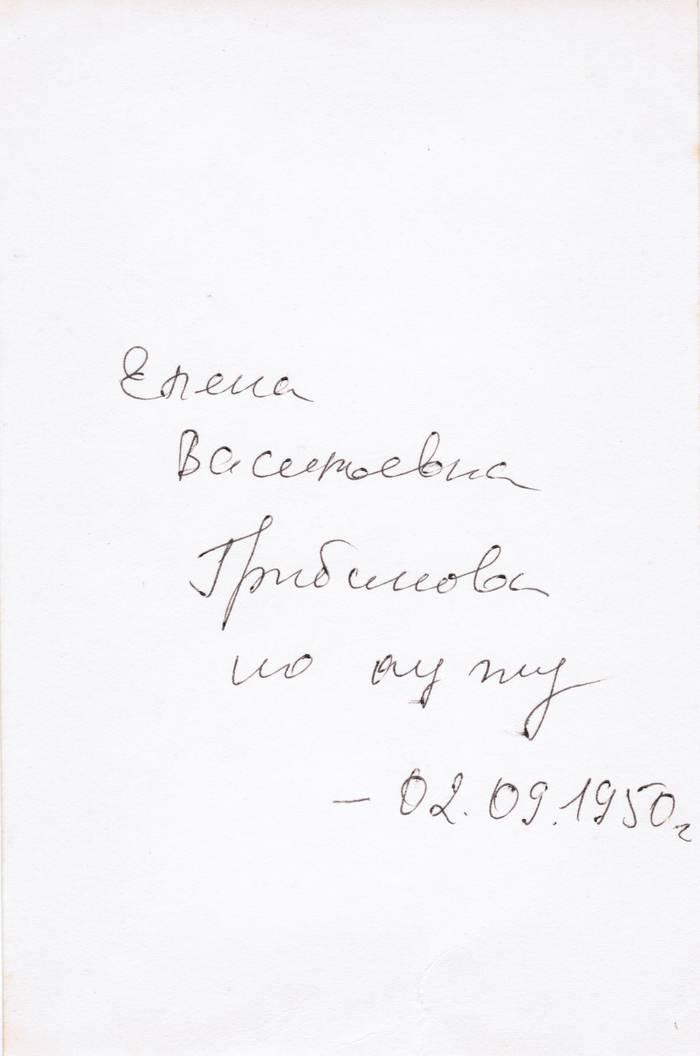 Елена
Васильевна
Грибанова
по мужу
– 02.09.1950г